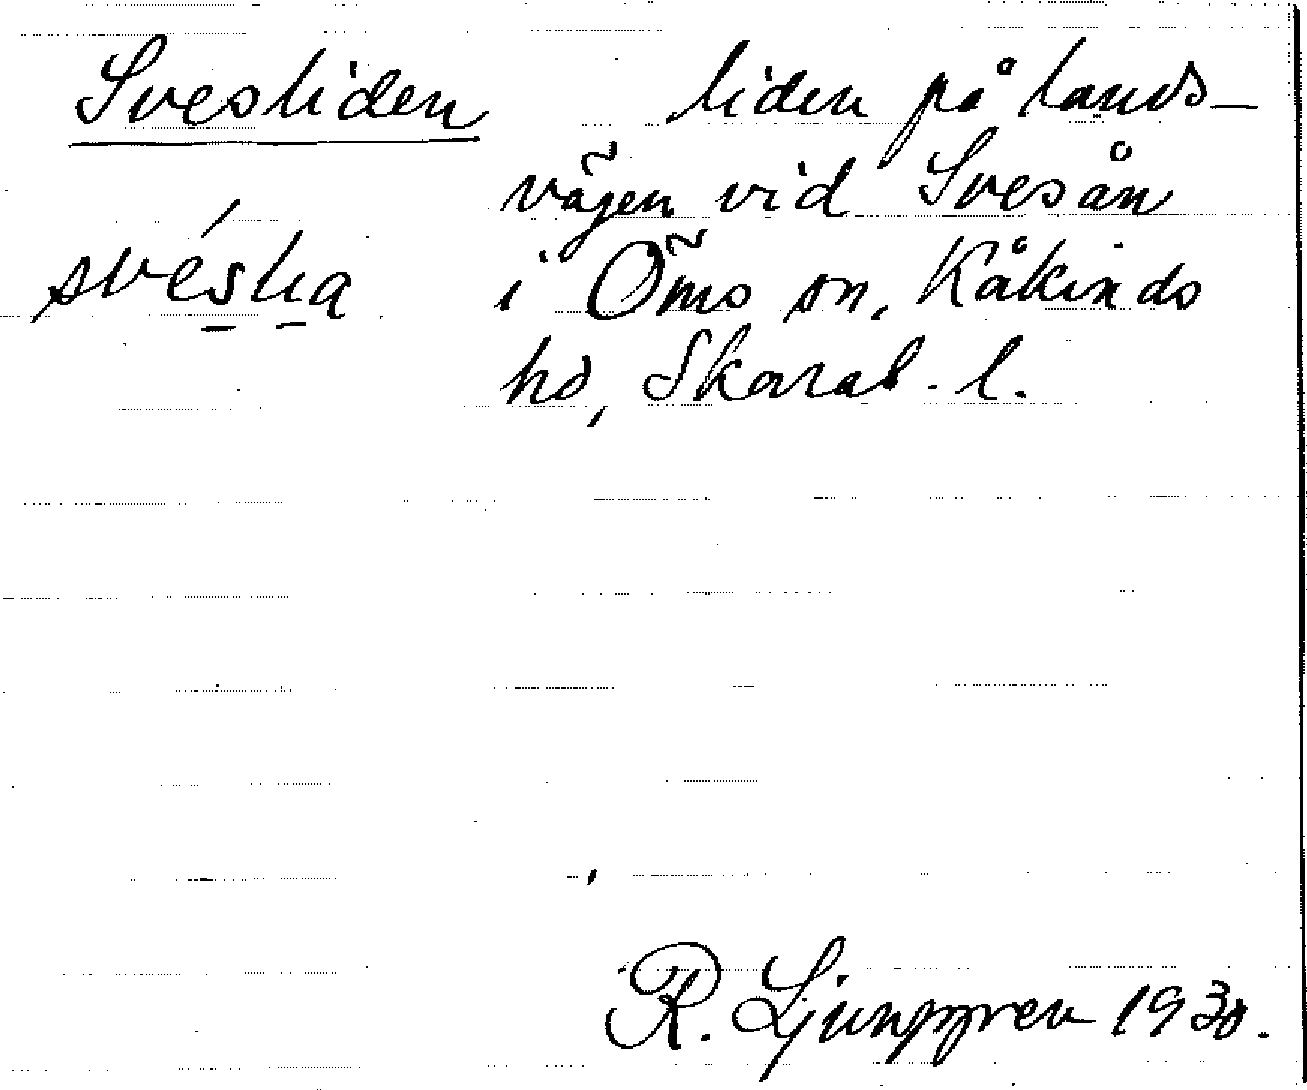 Svesliden liden på lands-
vägen vid Svesån
svéslia i Öms sn, Kåkinds
hd, Skarab. l.
R. Ljunggren 1930.